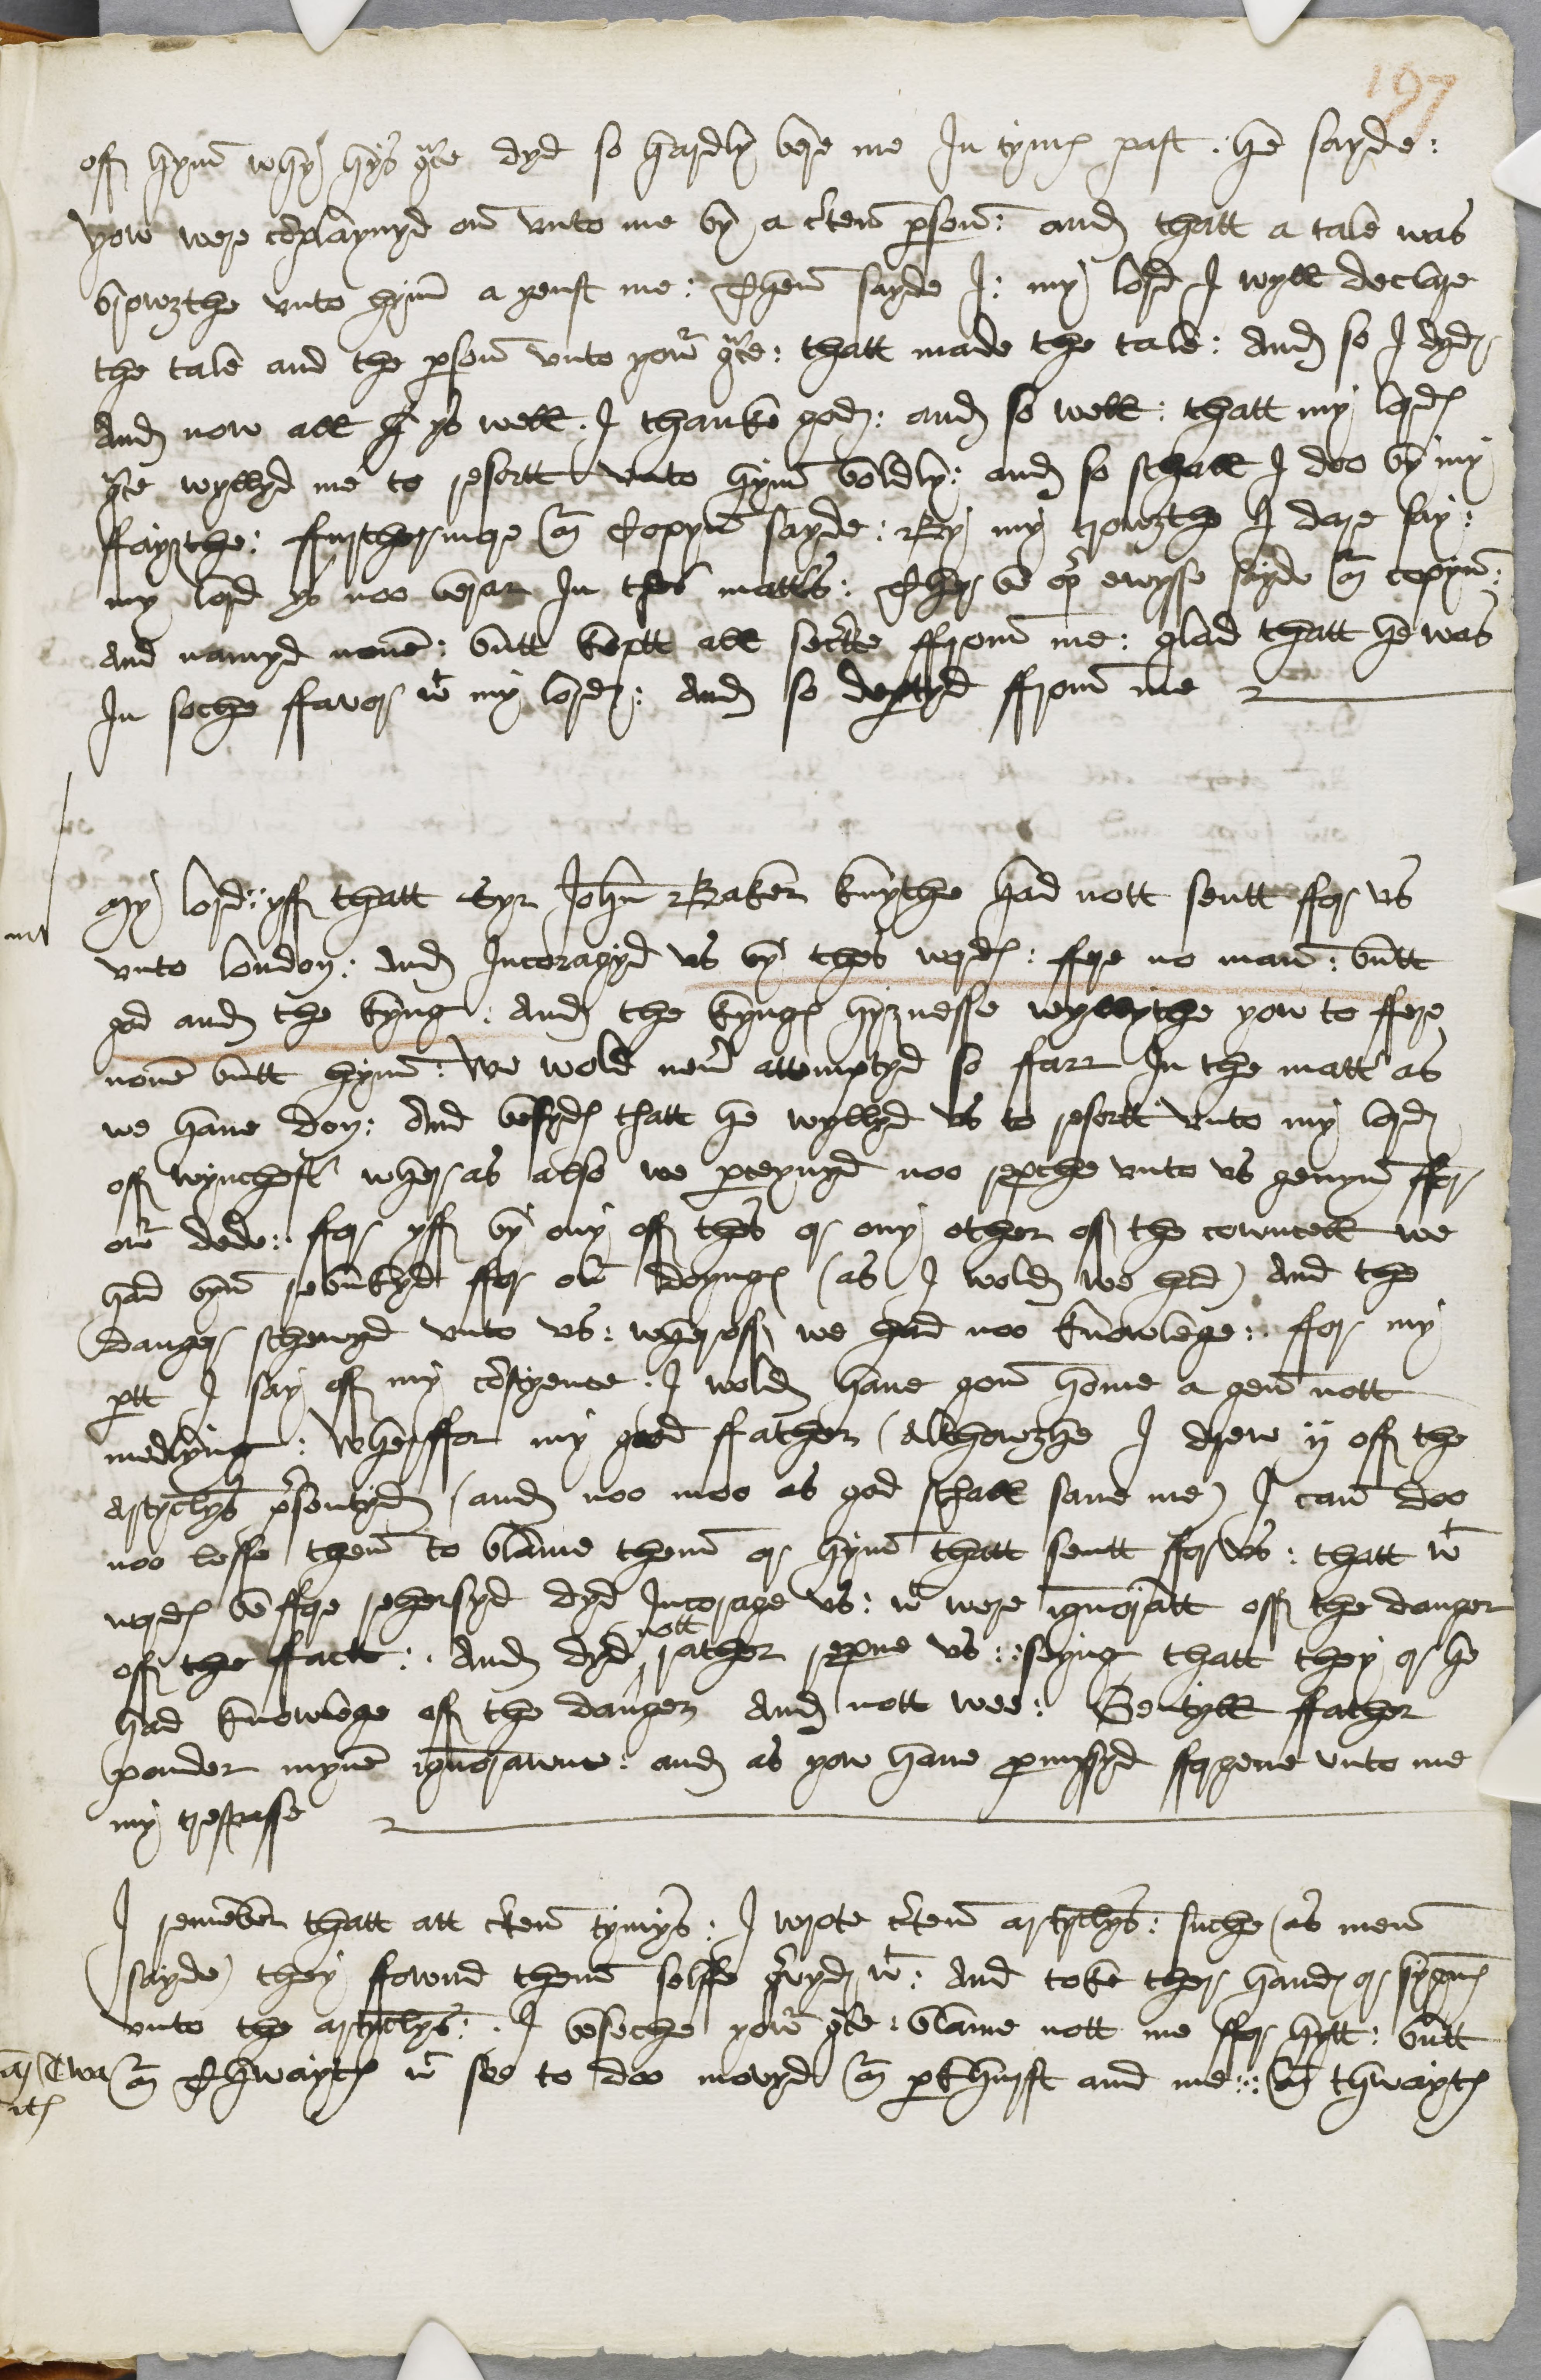 197
off hym why hys gce dyd so hardly bere me In tymes past . he sayde :
yow were cõplaynyd on vnto me by a cten pson : and thatt a tale was
browzthe vnto hym a yenst me : Then sayde I : my lord I wyll declare
the tale and the pson vnto yowr gce : thatt made the tale : And so I dyd
And now all ys well . I thanke god : and so well : thatt my lords
gce wyllyd me to resortt vnto hym boldly : and so schall I doo by my
ffaythe : ffurthermore Coppyn sayde : By my trowzthe I dare say :
my lord ys noo berar In thes matts : Ther be ewysse sayde coppyn :
And namyd none : butt keptt all secrete ffrom me : glad thatt he was
In soche ffavor wt my lord : And so deptyd ffrom me
My lord : yff thatt Syr John Baker knythe had nott sentt ffor vs
vnto london : And Incoragyd vs by thes words : ffere no man : butt
god and the kyng : And the kyngs hyznesse wyllythe yow to ffere
none butt hym : We wold neu attemptyd so ffarr In the matt as
we haue don : And besyds thatt he wyllyd vs to resortt vnto my lord
off wynchest wher as also we pceyuyd noo reproche vnto vs geuyn ffor
owr dede : ffor yff by ony off thes or ony other off the cowncell we
had byn rebukyd ffor our doyngs (as I wold we had) And the
danger schewyd vnto vs : wheroff we had noo knowlege : ffor my
ptt I say off my cõsyence . I wold haue gon home a gen nott
medlyng : Wherffor my good ffather (Althowzhe I drew ij off the
artyclys psentyd (and noo moo as god schall saue me) I can doo
noo lesse then to blame them or hym thatt sentt ffor vs : thatt wt
words beffore rehersyd dyd Incorage vs : wt were ignorantt off the danger
off the ffacte : And dyd nott rather reproue vs : seyng thatt they or he
had knowlege off the danger And nott wee : Gentyll ffather
ponder myne ignorance : and as yow haue pmysyd fforgeue vnto me
my trespasse
I remẽber thatt att cten tymys : I wrote cten artyclys : suche (as men
sayde) they ffownd them selffe gvyd wt : And toke ther hand or sygns
vnto the artyclys : I beseche yowr gce : blame nott me ffor hytt : butt
Thwayts wt see to doo movyd pkhurst and me : thwayts